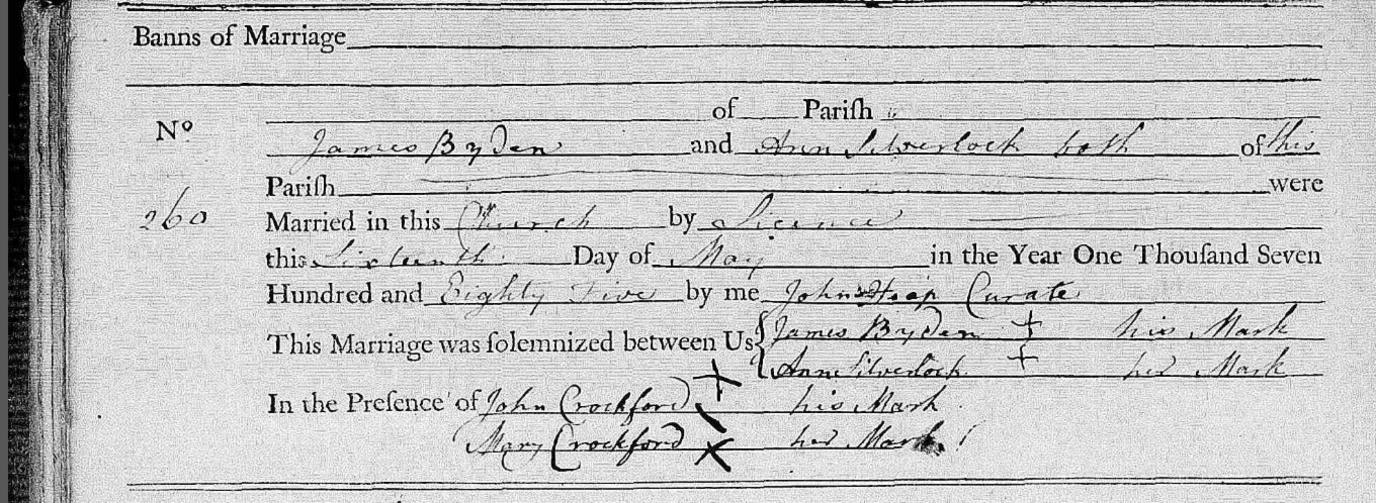 Banns of Marriage
of Pariſh
Nº James Byden and Ann Silverlock both of this
Pariſh were
260 Married in this Church by Licence
this Sixteenth Day of May in the Year One Thouſand Seven
Hundred and Eighty Five by me John Curate
This Marriage was ſolemnized between Us James Byden + his Mark
Ann Silverlock + her Mark
In the Preſence of John Crockford X his Mark
Mary Crockford X her Mark